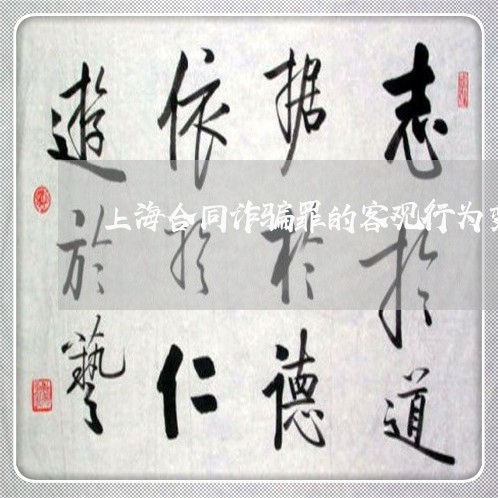 志於道
据於德
依於仁
遊於藝
上海合同诈骗罪的客观行为